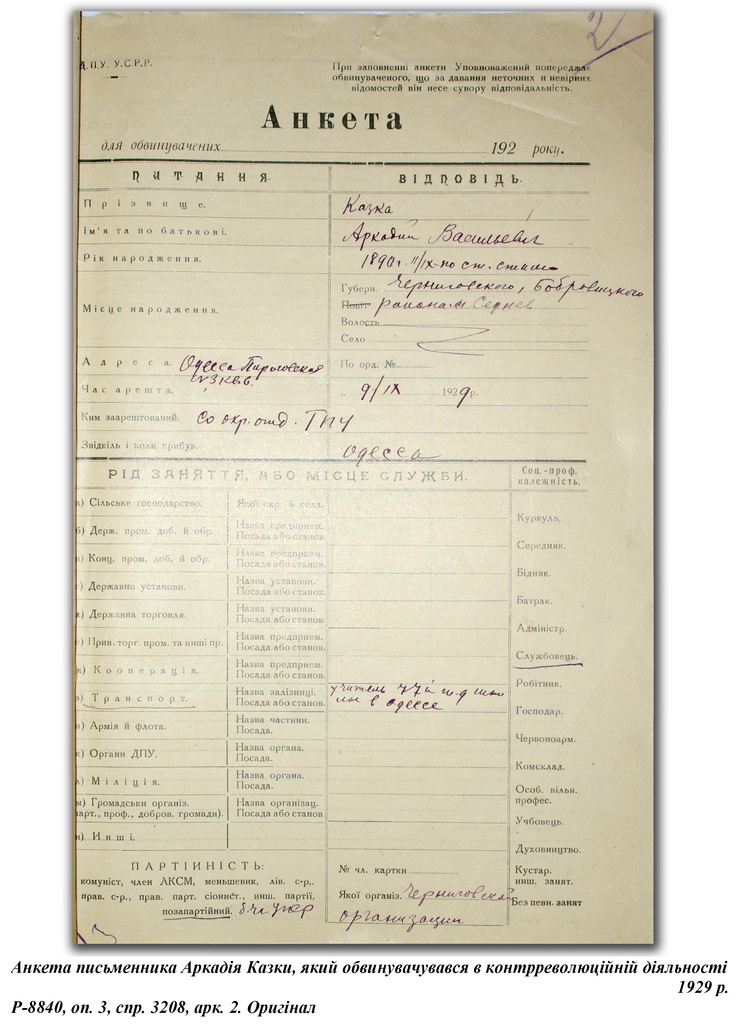 Д.П.У. У.С.Р.Р.
При заповненні анкети Уповноважений попереджає
обвинуваченого, що за давання неточних и невірних
відомостей він несе сувору відповідальність.
2
Анкета
для обвинувачених 192 року.
ПИТАННЯ ВІДПОВІДЬ.
Прізвище. Казка
Ім'я та по батькові. Аркадий Васильевич
Рік народження. 1890 г. 11/IX по ст. стилю
Місце народження.
Губерн. Черниговского, Бобровицкого
Повіт района м. Седнев
Волость
Село
Адреса. Одесса Пироговская По орд. №
Час арешта. „ 9/IX 1929 р.
Ким заарештований. Со окр. отд. ГПУ
Звідкіль і коли прибув. Одесса
РІД ЗАНЯТТЯ, АБО МІСЦЕ СЛУЖБИ. Соц.-проф. належність.
а) Сільське господарство. Якої окр. й села.
б) Держ. пром. доб. й обр. Назва предприєм. Посада або станов.
в) Конц. пром. доб. й обр. Назва предприєм. Посада або станов.
г) Державни установи. Назва установи. Посада або станов.
Державна торговля. Назва установи. Посада або станов.
Прив. торг. пром. та инші пр. Назва предприєм. Посада або станов.
Кооперація. Назва предприєм. Посада або станов.
Транспорт. Назва залізниці. Посада або станов. учитель 77й школы в Одессе
Армія й флота. Назва частини. Посада.
к) Органи ДПУ. Назва органа. Посада.
л) Міліція. Назва органа. Посада.
м) Громадськи організ. Назва організац.
парт., проф., добров. громади). Посада або станов.
н) Инші.
Куркуль.
Середняк.
Бідняк.
Батрак.
Адміністр.
Службовець.
Робітник.
Господар.
Червоноарм.
Комсклад.
Особ. вільн. профес.
Учбовець.
Духовництво.
Кустар. инш. занят.
Без певн. занят
ПАРТІЙНІСТЬ:
комуніст, член ЛКСМ, меньшевик, лів. с-р.,
прав. с-р., прав. парт. сіонист., инш. партії,
позапартійний.
№ чл. картки
Якої організ. Черниговской
организации
Анкета письменника Аркадія Казки, який обвинувачувався в контрреволюційній діяльності
1929 р.
Р-8840, оп. 3, спр. 3208, арк. 2. Оригінал